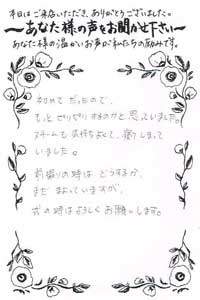 本日はご来店いただき、ありがとうございました。
〜あなた様の声をお聞かせ下さい〜
あなた様の温かいお声が私たちの励みです。
初めてだったので、
もっとピリピリするのかと思っていました。
スチームも気持ちよくて、癒しまって
いました。
前撮りの時はどうするか、
まだまよっていますが、
式の時はよろしくお願いします。